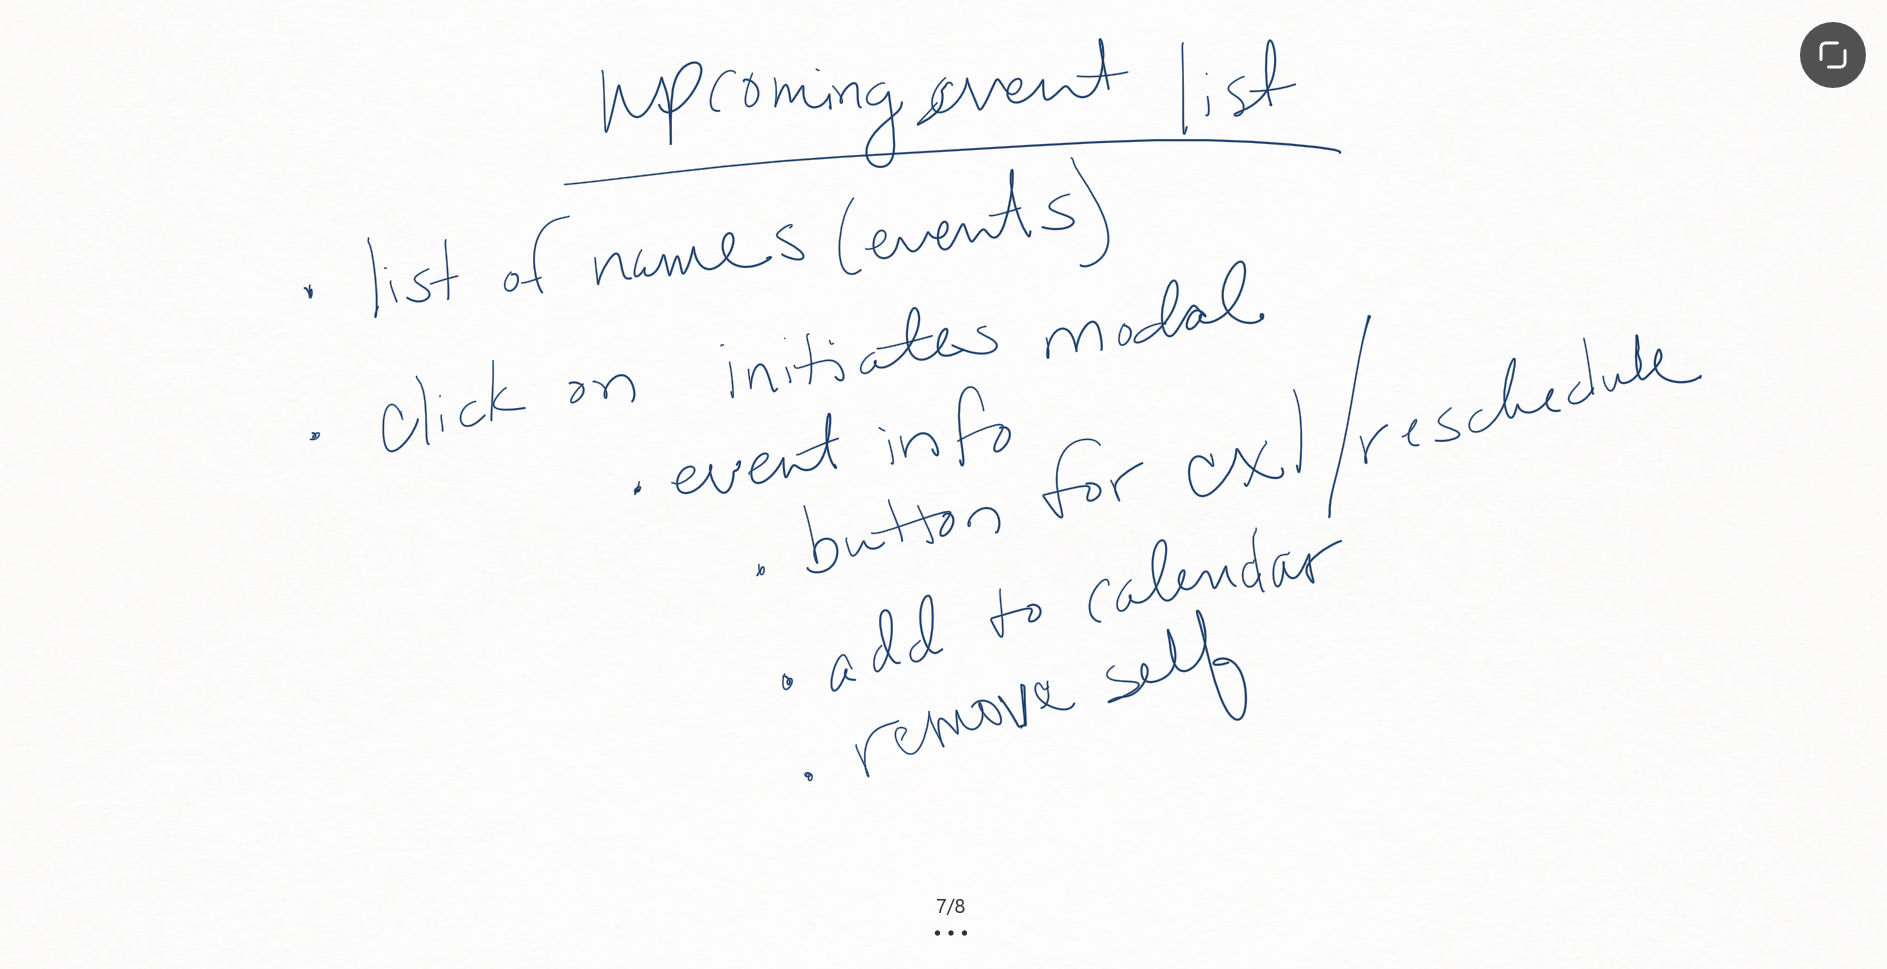 Upcoming event list
• list of names (events)
• click on initiates modal
• event info
• button for cxl/reschedule
• add to calendar
• remove self
7/8